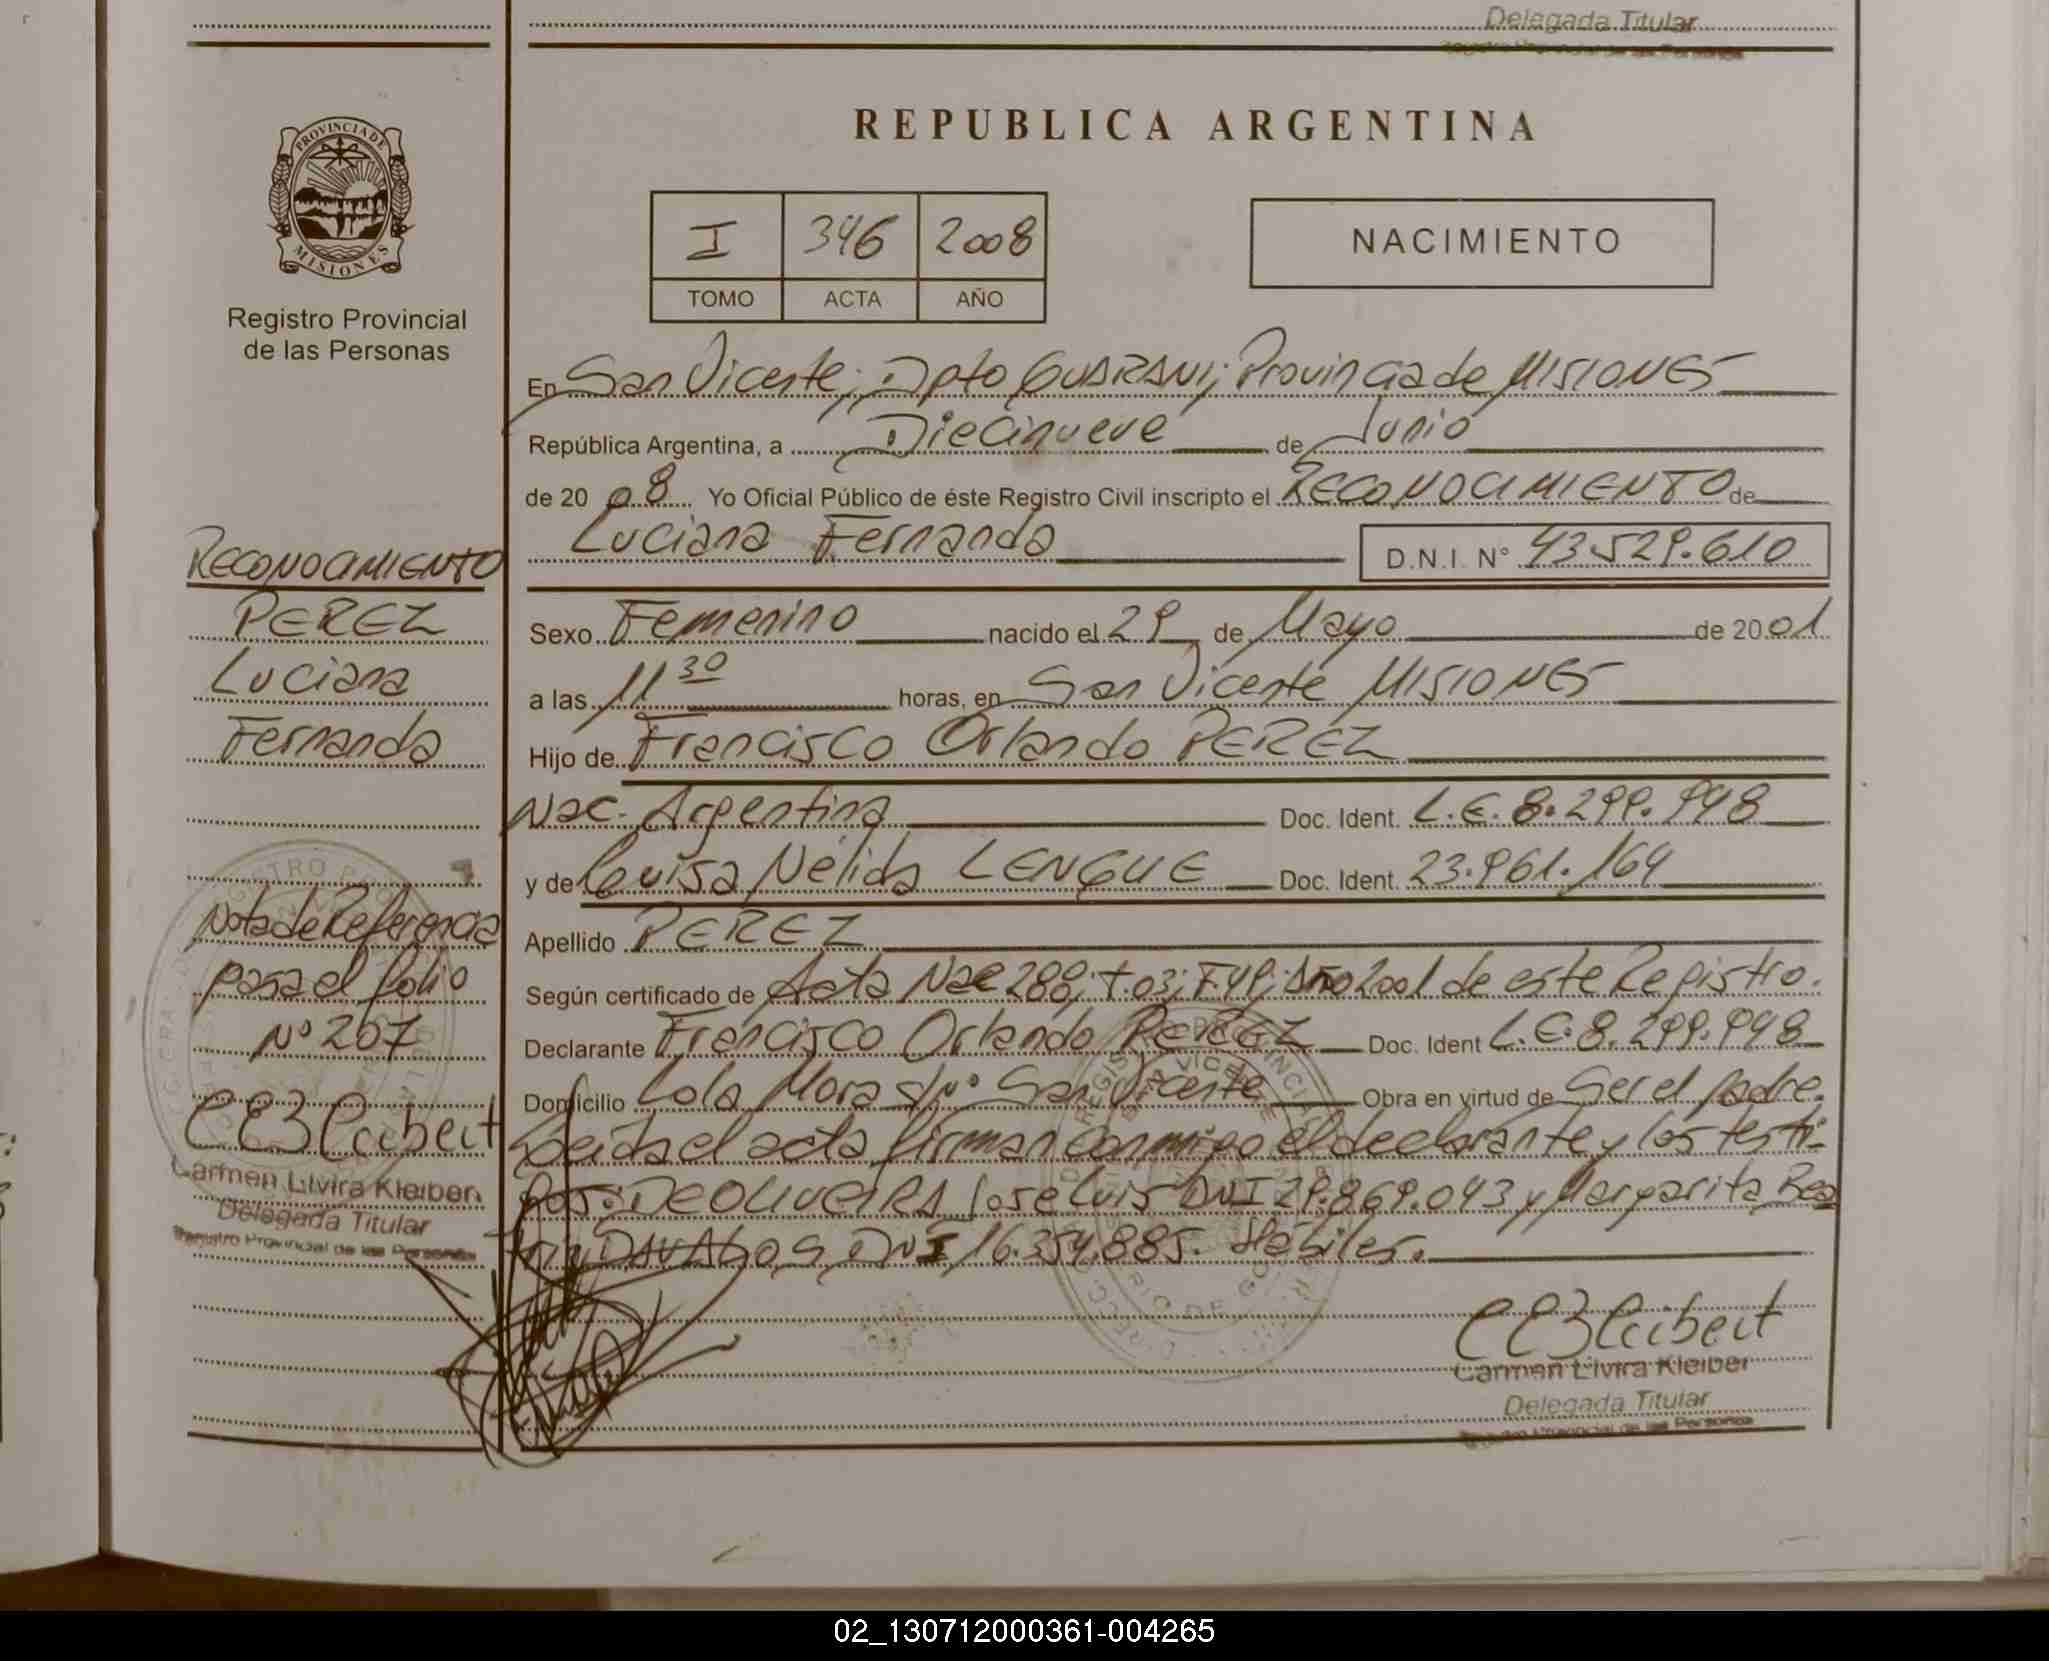 Delegada Titular
PROVINCIA DE
MISIONES
Registro Provincial
de las Personas
REPUBLICA ARGENTINA
I 346 2008
TOMO ACTA AÑO
NACIMIENTO
En San Vicente; Dpto GUARANI; Provincia de MISIONES
República Argentina, a Diecinueve de Junio
de 20 08 Yo Oficial Público de éste Registro Civil inscripto el RECONOCIMIENTO de
Luciana Fernanda D.N.I. N° 43.529.610
Sexo Femenino nacido el 29 de Mayo de 20 01
a las 11 30 horas, en San Vicente MISIONES
Hijo de Francisco Orlando PEREZ
Nac. Argentina Doc. Ident. L.E. 8.299.948
y de Luisa Nélida LENGUE Doc. Ident. 23.961.164
Apellido PEREZ
Según certificado de Acta Nac 288; T.03; F.49; Año 2001 de este Registro.
Declarante Francisco Orlando PEREZ Doc. Ident L.E. 8.299.948
Domicilio Lola Mora s/n° San Vicente Obra en virtud de Ser el padre.
Leída el acta firman conmigo el declarante y los testi-
gos: DEOLIVEIRA Jose Luis DNI 29.869.043 y Margarita Bea
triz DAVALOS DNI 16.354.885. Hábiles.
Carmen Elvira Kleiber
Delegada Titular
Registro Provincial de las Personas
RECONOCIMIENTO
PEREZ
Luciana
Fernanda
Nota de Referencia
pasa el folio
N° 207
Carmen Elvira Kleiber
Delegada Titular
Registro Provincial de las Personas
02_130712000361-004265